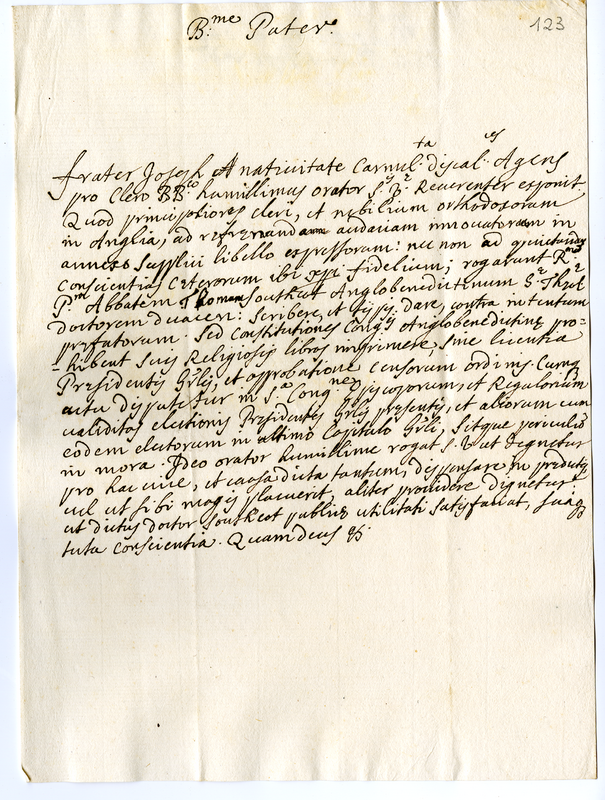 B.me Pater.
123
frater Joseph A nativitate Carmel.ta discal.us Agens
pro Clero humillimus orator S. V. Reverenter exponit,
Quod principaliores cleri, et nobilium orthodoxorum
in Anglia, ad refrenandam audaciam innovatorum in
annexo supplici libello expressorum: nec non ad quietandas
conscientias Ceterorum ibi fidelium; rogarunt R.
P.m Abbatem Thomam Southcot Anglobenedictinum S.
doctorem duacen: scribere, et typis dare, contra intentum
prefatorum. Sed Constitutiones Congnis Anglobenedictine pro=
=hibent suis Religiosis libros imprimere, sine licentia
Presidentis Glis, et approbatione censorum ordinis. Cumq
actu disputetur in S.a Congne Episcoporum, et Regularium
validitas electionis Presidentis Glis presentis, et aliorum cum
eodem electorum in ultimo Capitulo Gli, sitque periculum
in mora. Ideo orator humillime rogat S. V. ut dignetur
pro hac vice, et causa dicta tantum, dispensare in predictis
vel ut sibi magis placuerit, aliter providere dignetur
ut dictus doctor Southcot publice utilitati satisfaciat,
tuta conscientia. Quam deus &.